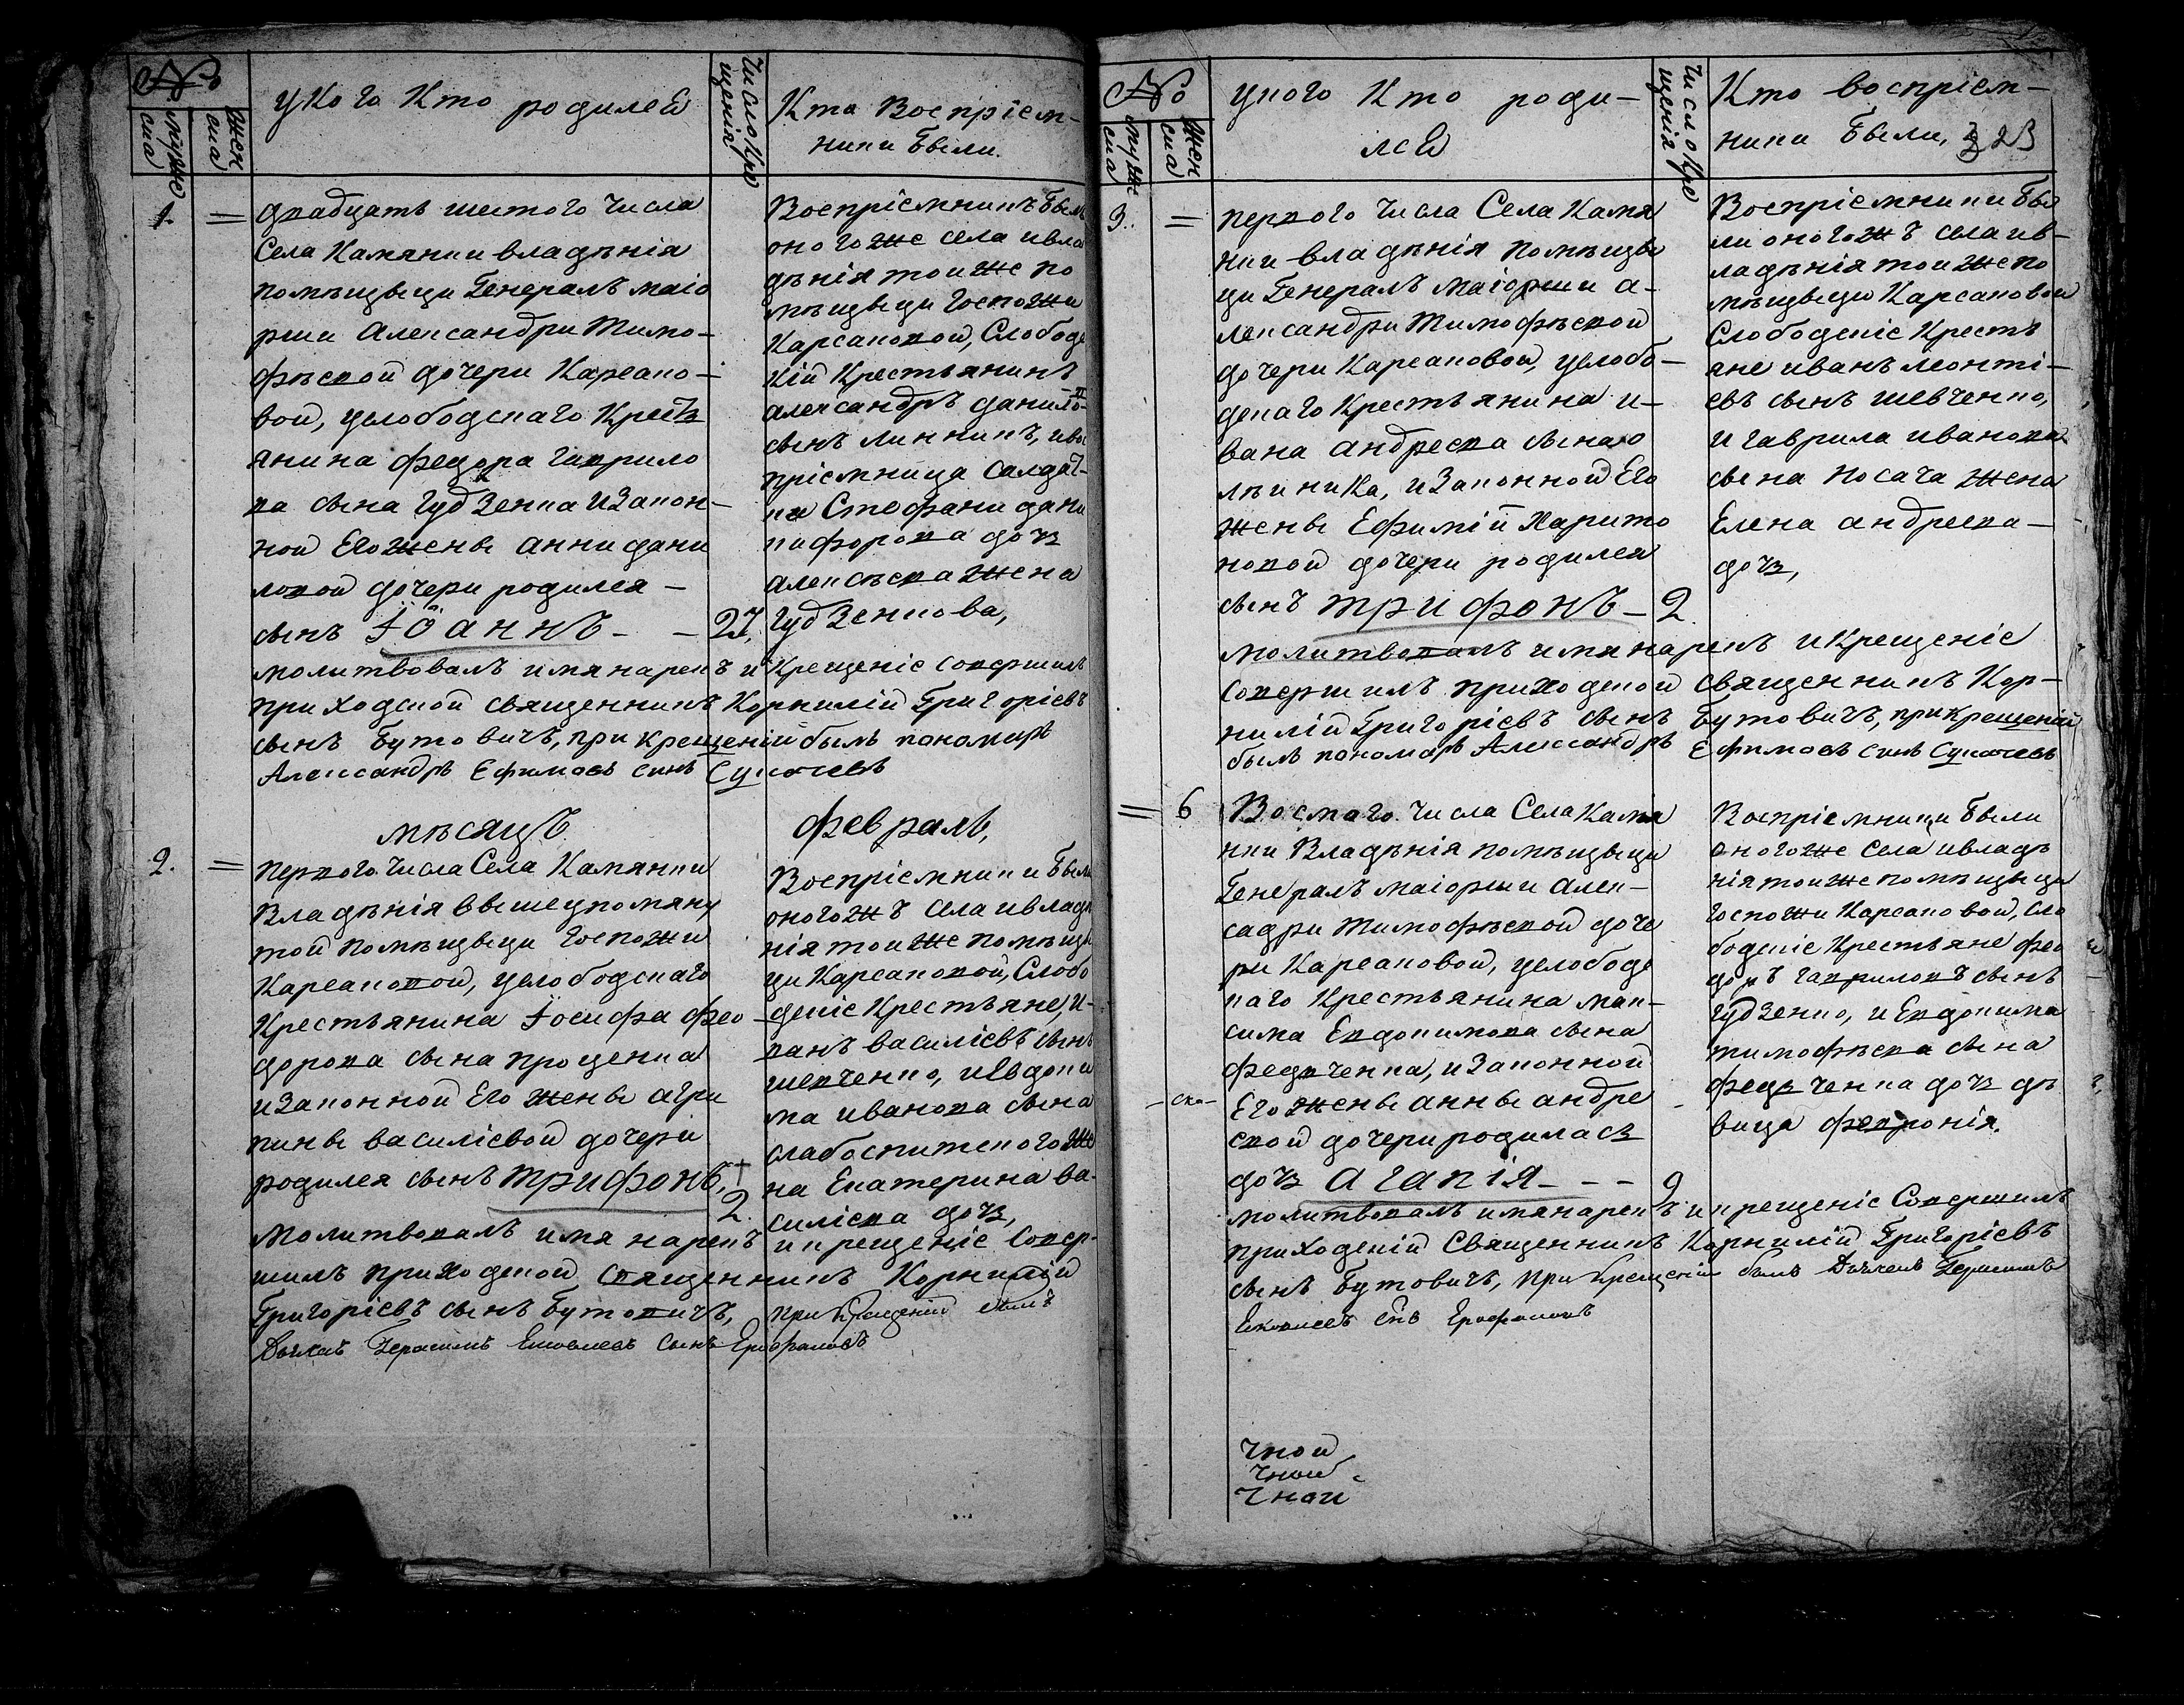 №
мужеска
женска
У Кого Кто родилса
Число Крещенія
Кто Воспріем-
ники были.
1.
=
двадцать шестого Числа
Села Камянки владѣнія
помѣщыци Генералъ маіо
рши Александри Тимо-
фѣевой дочери Карсано-
вой, услободскаго Крест
янина федора гаврило
ва сына гудзенка и Закон-
ной Его жены анни дани
ловой дочери родилея -
сынъ Іоаннъ - - 27.
Воспріемникъ былъ
оногоже села ивла
дѣнія тоиже по
мѣщыци госпожи
Карсановой, Слободс
кій Крестьянинъ
александръ данило-
сынъ линникъ, ивос
пріемница салдат-
ка Стефани да
никфорова дочь
алексѣева жена
гудзенкова,
молитвовалъ имя нарекъ и Крещеніе совершилъ
приходской священникъ Корнилій Григоріевъ
сынъ бутовичъ, при крещеній былъ пономарь
Александръ Ефимовъ синъ Сукачевъ
мѣсяцъ февраль,
2.
=
первого Числа Села Камянки
Владѣнія вышеупомяну
той помѣщыци госпожи
Карсановой, услободскаго
Крестьянина Іосифа Фео
дорова сына проценка
и Законной Его жены агри
пины василіевой дочери
родилея сынъ трифонъ, 2.
Воспріемники были
оногожъ села ивладѣ
нія тоиже помѣщы
ци Карсановой, Слобо
дскіе Крестьяне, и-
ванъ василіевъ сынъ
шевченко, иЕвдоки
ма иванова сына
слабоспитского же
на Екатерина ва-
силіева дочь,
Молитвовалъ имя нарекъ и крещеніе Совер-
шилъ приходской священникъ Корнилій
Григоріевъ сынъ бутовичъ, при крещеніи былъ
Дьячокъ Герасимъ Яковлевъ сынъ Ерофаловъ
№
мужеска
женска
У кого Кто роди-
лса
Число Крещенія
Кто воспріем-
ники были, 23
3.
=
первого Числа Села Камя
нки владѣнія помѣщы
ци Генералъ маіорши а-
лександри Тимофѣевой
дочери Карсановой, услобо-
дскаго Крестьянина и-
вана андреева сына
лѣиника, и Законной Его
жены Ефимій Харито
новой дочери родилея
сынъ трифонъ - 2.
Воспріемники бы
ли оногожъ села ив-
ладѣнія тоиже по
мѣщыци Карсановой
Слободскіе Кресть
яне иванъ леонті-
евъ сынъ шевченко,
и гаврила иванова
сына носача жена
Елена андреева -
дочь,
Молитвовалъ имя нарекъ и Крещеніе
Совершилъ приходской священникъ Кор-
нилій Григоріевъ сынъ бутовичъ, при крещеній
былъ пономарь Александръ Ефимовъ синъ Сукачевъ
=
6
Восмаго Числа Села Камя
нки Владѣнія помѣщыци
Генералъ маіорши Алек-
садри Тимофѣевой доче
ри Карсановой, услободс
каго Крестьянина мак-
сима Евдокимова сына
федвченка, и Законной
Его жены анны андре
-ска- евой дочери родилась
дочь агапія - - - 9
Воспріемници были
оногоже Села ивладѣ
нія тоиже помѣщыци
госпожи Карсановой, сло
бодскіе Крестьяне фео
доръ гавриловъ сынъ
гудзенко, и Евдокима
тимофѣева сына
федвченка дочь дѣ
вица февронія.
молитвовалъ имя нарекъ и крещеніе Совершилъ
приходскій Священникъ Корнилій Григоріевъ
сынъ бутовичъ, при Крещеніи былъ Дьячокъ Герасимъ
Яковлевъ снъ Ерофаловъ
чной
чной
чной